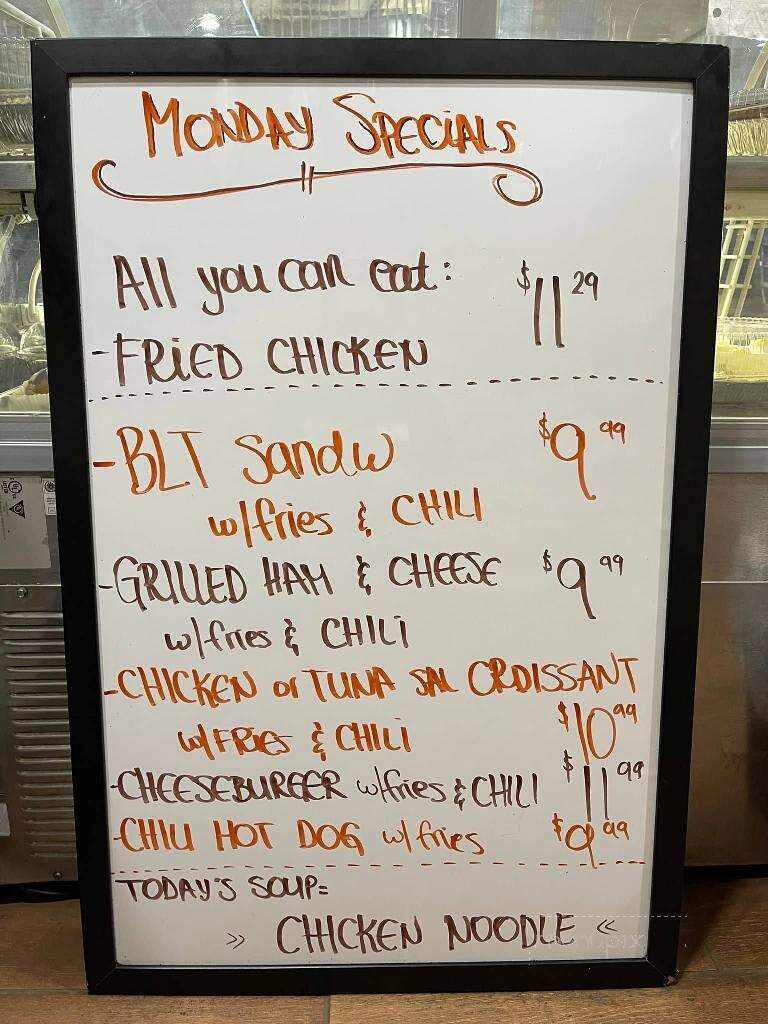 MONDAY SPECIALS
All you can eat: $11 29
- FRIED CHICKEN
- BLT Sandw $9 99
w/fries & CHILI
- GRILLED HAM & CHEESE $9 99
w/fries & CHILI
- CHICKEN or TUNA SAL CROISSANT
w/FRIES & CHILI $10 99
- CHEESEBURGER w/fries & CHILI $11 99
- CHILI HOT DOG w/fries $9 99
TODAY'S SOUP=
>> CHICKEN NOODLE <<